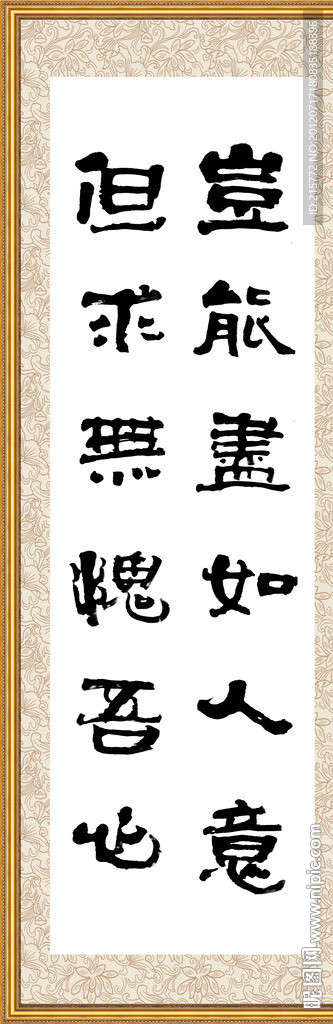 豈能盡如人意
但求無愧吾心
ID:215772 NO:20120717180835188396
昵图网 www.nipic.com